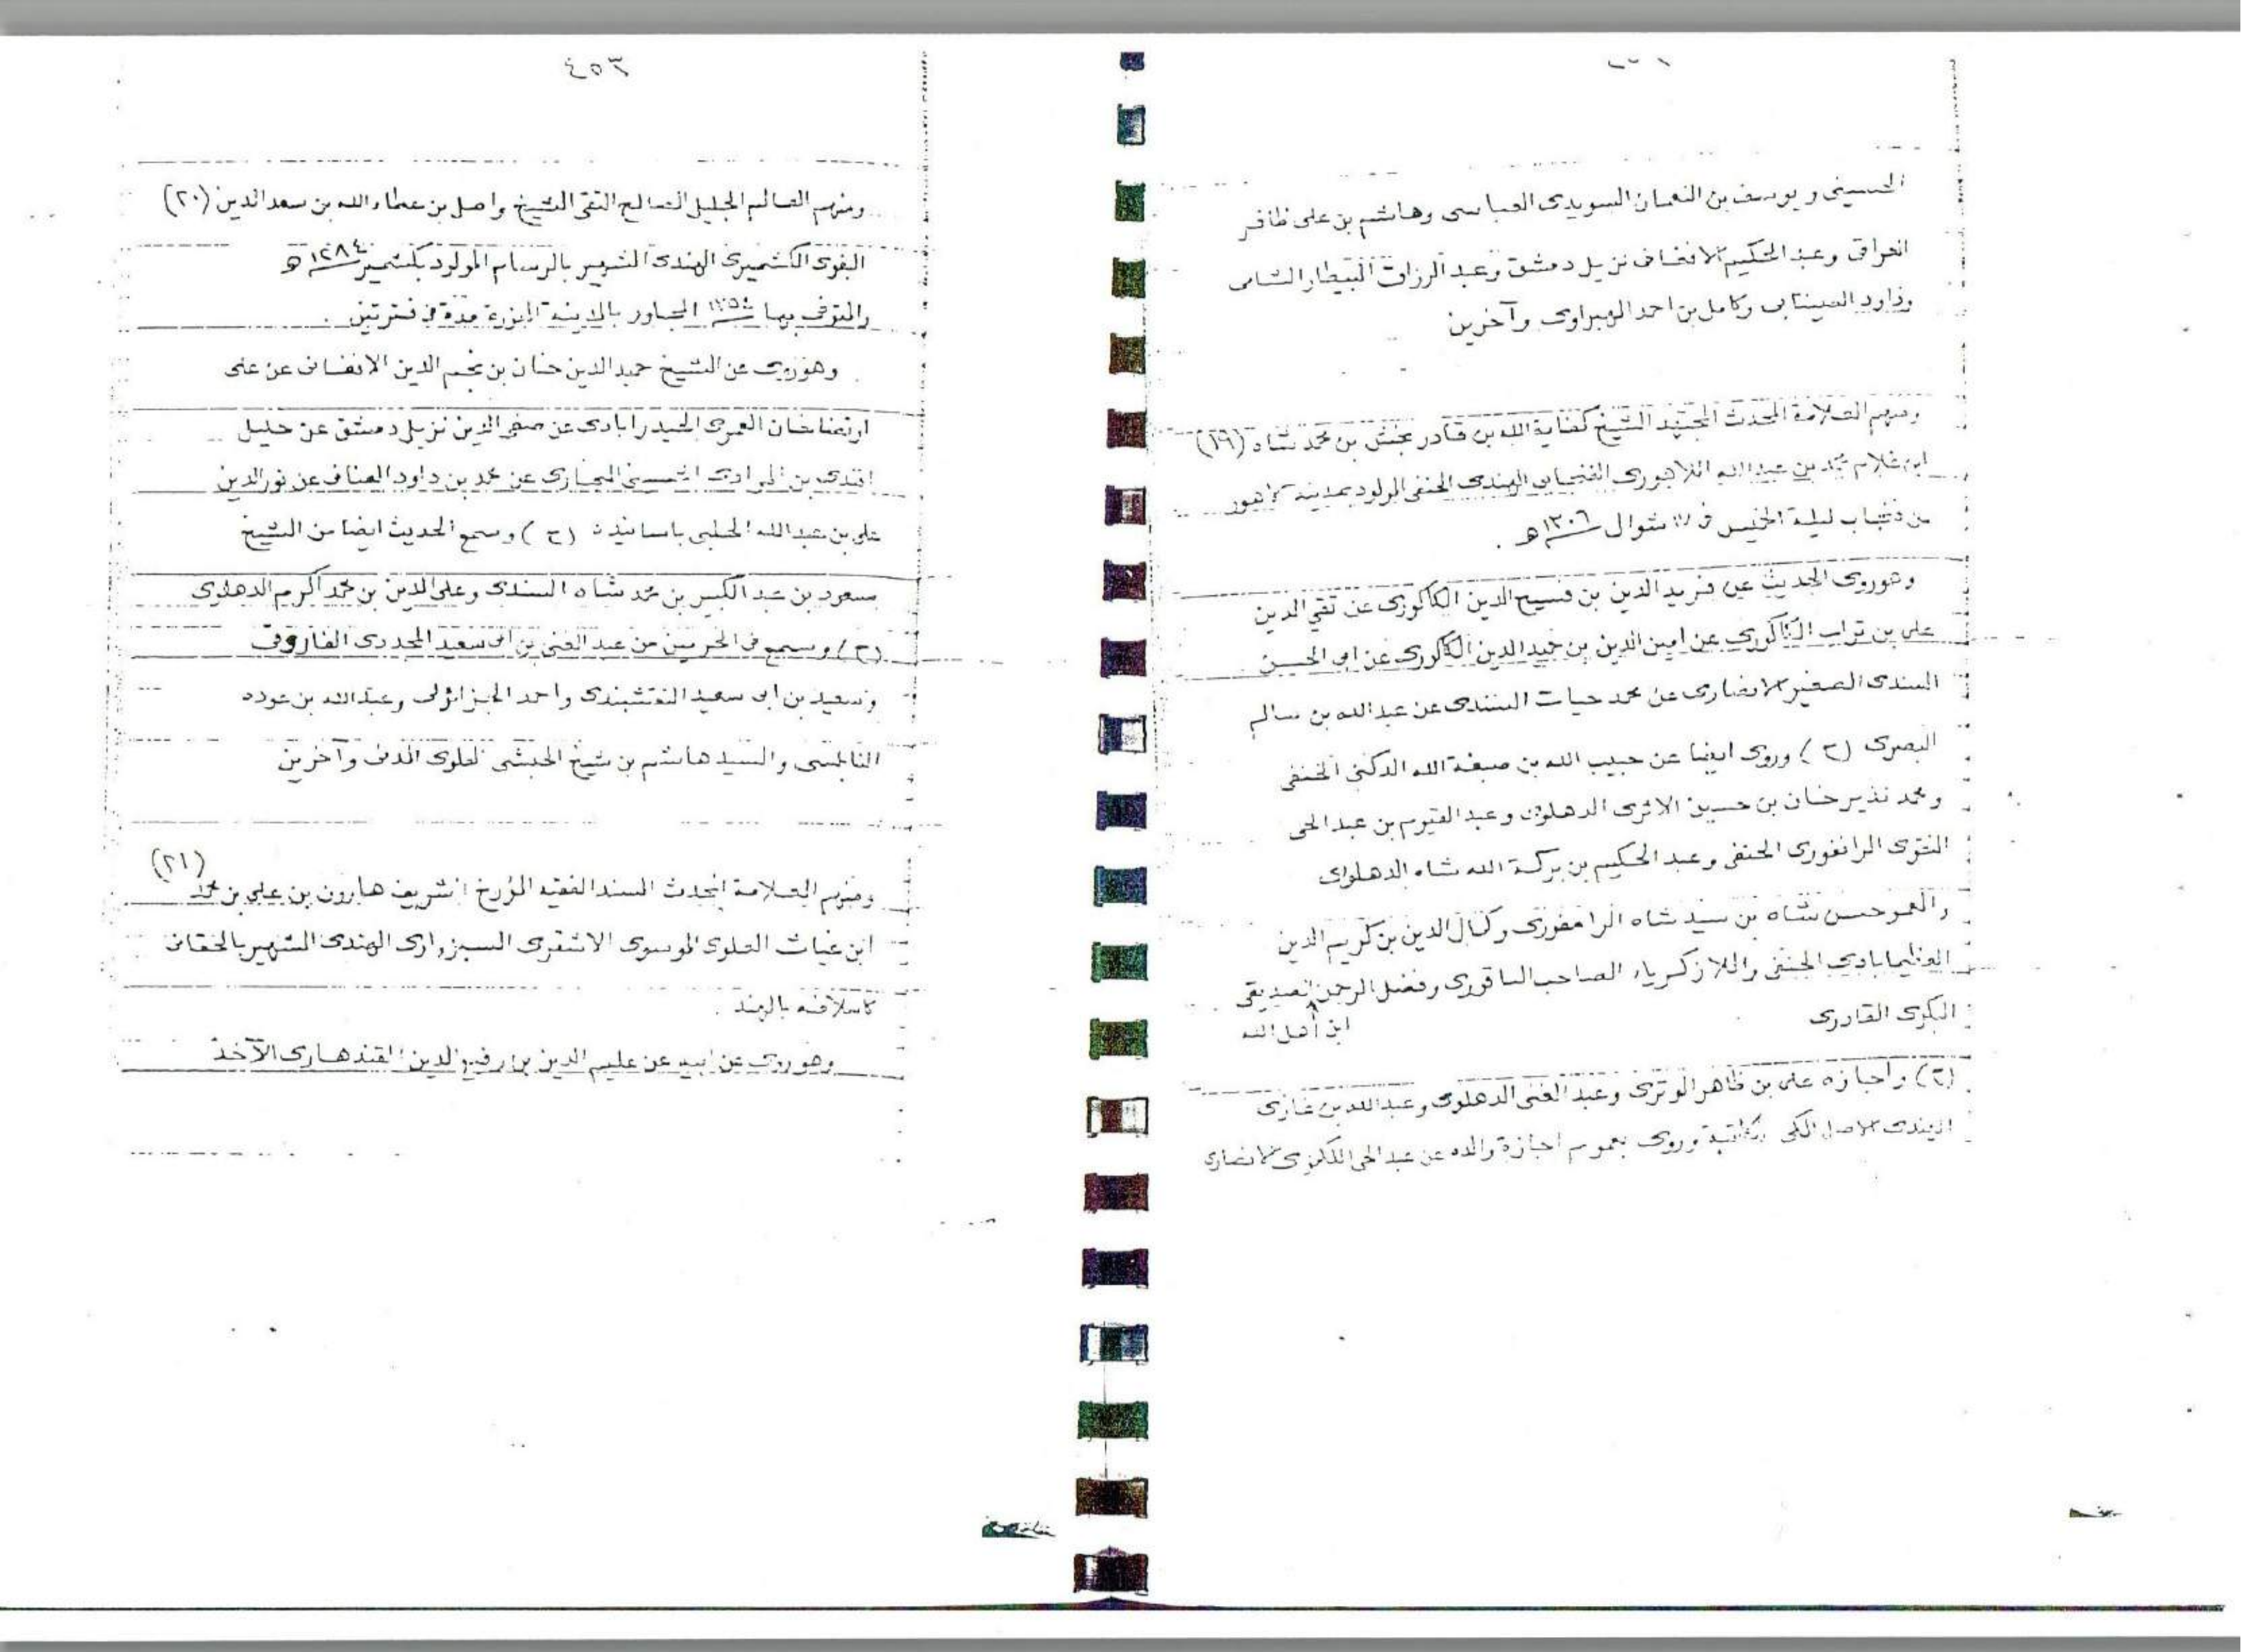 الحسيني ويوسف بن النعمان السويدى العباسى وهاشم بن على ظافر
العراقى وعبد الحكيم الافغانى نزيل دمشق وعبد الرزاق البيطار الشامى
وداود العينتابى وكامل بن احمد الهبراوى وآخرين
ومنهم العلامة المحدث المجتهد الشيخ كفاية الله بن قادر بخش بن محمد شاه (١٩)
ابن غلام محمد بن عبد الله اللاهورى الفنجابى الهندى الحنفى المولود بمدينة لاهور
من فنجاب ليلة الخميس فى شوال ١٣٠٦ هـ .
وهو روى الحديث عن فريد الدين بن فسيح الدين الكاكورى عن تقي الدين
على بن تراب الكاكورى عن امين الدين بن حميد الدين الكاكورى عن ابى الحسن
السندى الصغير الانصارى عن محمد حيات السندى عن عبد الله بن سالم
البصرى (ح) وروى ايضا عن حبيب الله بن صبغة الله الدكنى الحنفى
ومحمد نذير خان بن حسين الاثرى الدهلوى وعبد القيوم بن عبد الحى
النقوى الرامفورى الحنفى وعبد الحكيم بن بركة الله شاه الدهلوى
والعمو حسن شاه بن سيد شاه الرامفورى وكمال الدين بن كريم الدين
العظيمابادى الحنفى والملا زكرياء الصاحب الساقورى وفضل الرحمن الصديقى
ابن أهل الله
البكرى القادرى
(ح) واجازه على بن ظاهر الوترى وعبد الغنى الدهلوى وعبد الله بن غازى
الهندى الاصل المكى مكاتبة وروى بعموم اجازة والده عن عبد الحى اللكنوى الانصارى
٤٥٣
ومنهم العالم الجليل الصالح التقى الشيخ واصل بن عطاء الله بن سعد الدين (٢٠)
البغوى الكشميرى الهندى الشهير بالرسام المولود بكشمير ١٢٨٤ هـ
والمتوفى بها المجاور بالمدينة المنورة مدة فى فترتين .
وهو روى عن الشيخ حميد الدين خان بن نجم الدين الافغانى عن على
ارتضا خان العمرى الحيدرابادى عن صفى الدين نزيل دمشق عن خليل
افندى بن المرادى الحسينى البخارى عن محمد بن داود العنانى عن نور الدين
على بن عبد الله الحلبى باسانيده (ح) وسمع الحديث ايضا من الشيخ
مسعود بن عبد الكبير بن محمد شاه السندى وعلى الدين بن محمد اكرم الدهلوى
(ح) وسمع فى الحرمين من عبد الغنى بن ابى سعيد المجددى الفاروقى
وسعيد بن ابى سعيد النقشبندى واحمد الجزائرلى وعبد الله بن عوده
النابلسى والسيد هاشم بن شيخ الحبشى العلوى المدنى وآخرين
ومنهم العلامة المحدث المسند الفقيه المؤرخ الشريف هارون بن على بن محمد (٢١)
ابن غياث العلوى الموسوى الاشقرى السبزوارى الهندى الشهير بالحقانى
كاسلافه بالهند .
وهو روى عن ابيه عن عليم الدين بن رفيع الدين القندهارى الآخذ